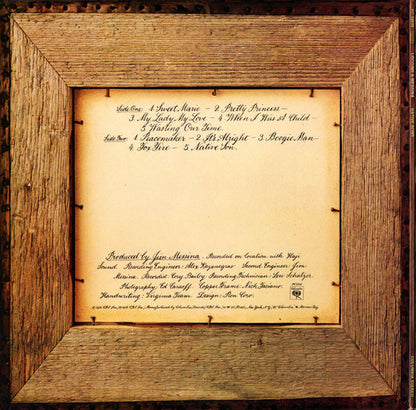 Side One: 1. Sweet Marie – 2. Pretty Princess –
3. My Lady, My Love – 4. When I Was A Child –
5. Wasting Our Time.
Side Two: 1. Peacemaker – 2. It's Alright – 3. Boogie Man –
4. Fox Fire – 5. Native Son.
Produced by Jim Messina. Recorded on Location with Haji
Sound. Recording Engineer: Alex Kazanegras. Second Engineer: Jim
Messina. Recordist: Cory Bailey. Recording Technician: Lou Schatzer.
Photography: Ed Caraeff. Copper Frame: Nick Fasciano.
Handwriting: Virginia Team. Design: Ron Coro.